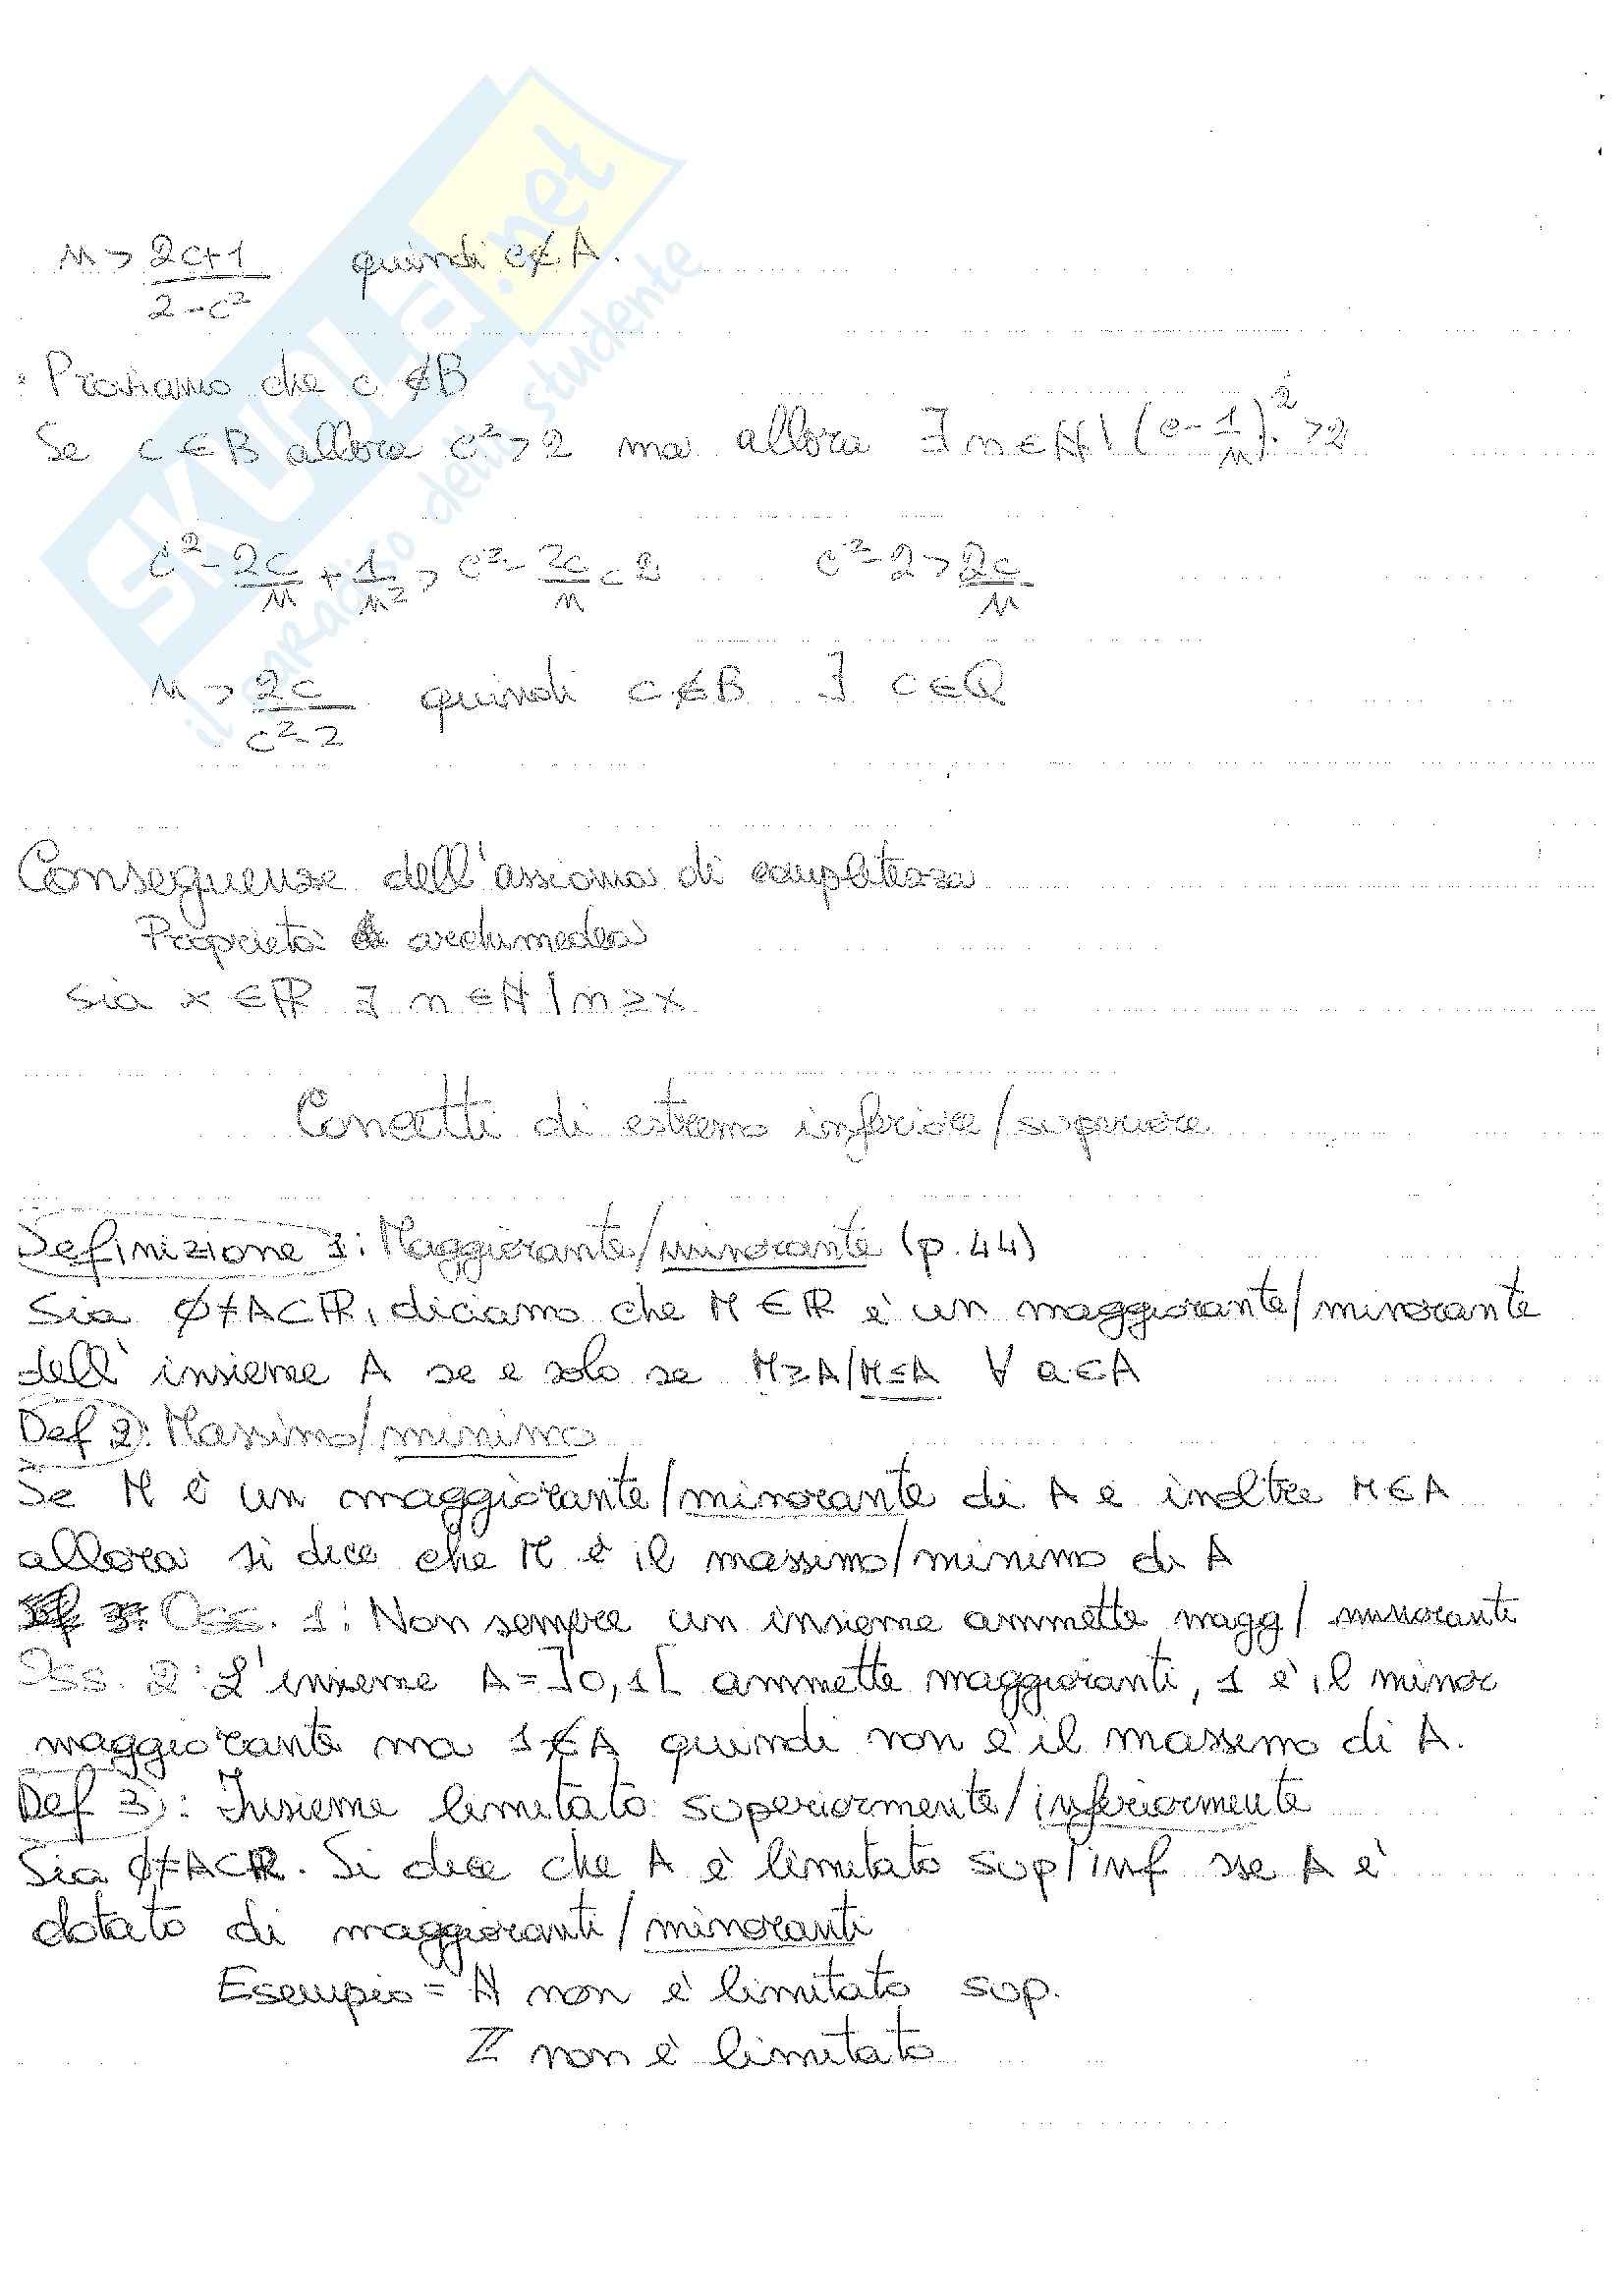 n > 2c+1 / 2-c² quindi c∉A.
: Proviamo che c ∉B
Se c∈B allora c²>2 ma allora ∃ n∈ℕ | (c-1/n)² >2
c² - 2c/n + 1/n² > c² - 2c/n < 2 c²-2 > 2c/n
n > 2c / c²-2 quindi c∉B ∃ c∈Q
Conseguenze dell'assioma di completezza
Proprietà archimedea
Sia x∈ℝ ∃ n∈ℕ | n≥x
Concetti di estremo inferiore/superiore
Definizione 1: Maggiorante/minorante (p.44)
Sia ∅≠A⊂ℝ, diciamo che M∈ℝ è un maggiorante/minorante
dell'insieme A se e solo se M≥A/M≤A ∀ a∈A
Def 2: Massimo/minimo
Se M è un maggiorante/minorante di A e inoltre M∈A
allora si dice che M è il massimo/minimo di A
Oss. 1: Non sempre un insieme ammette magg/ minoranti
Oss. 2: L'insieme A=]0,1[ ammette maggioranti, 1 è il minor
maggiorante ma 1∉A quindi non è il massimo di A.
Def 3: Insieme limitato superiormente/inferiormente
Sia ∅≠A⊂ℝ. Si dice che A è limitato sup/inf sse A è
dotato di maggioranti/minoranti
Esempio = ℕ non è limitato sup.
ℤ non è limitato
SKUOLA.net
il paradiso dello studente